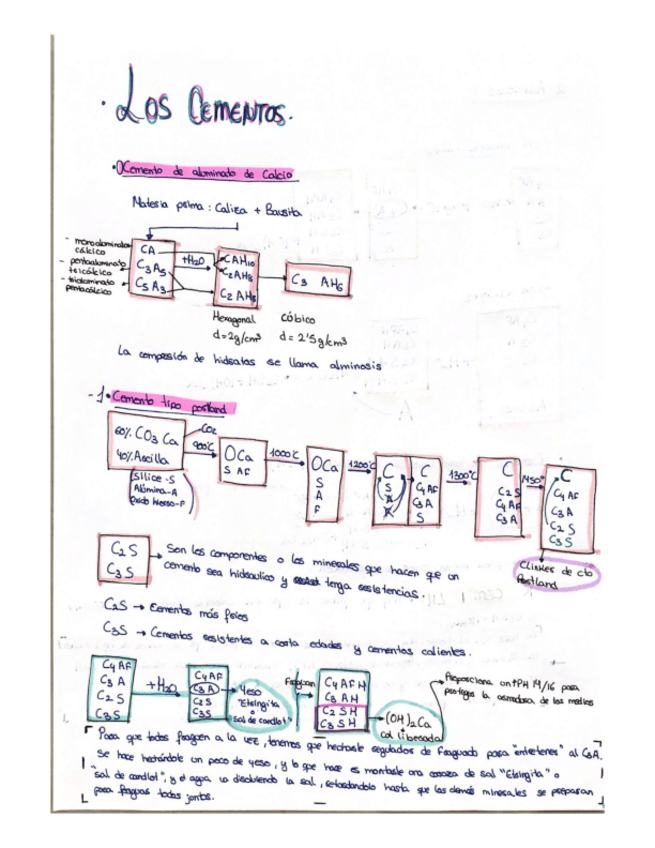 · Los Cementos.
· 0 Cemento de aluminato de Calcio
Materia prima : Caliza + Bauxita
- monoaluminato cálcico
- pentaaluminato tricálcico
- trialuminato pentacálcico
CA
C3A5
C5A3
+H2O
CAH10
C2AH8
C2AH8
C3 AH6
Hexagonal
d=2g/cm³
cúbico
d= 2'5g/cm³
La conversión de hidratos se llama aluminosis
- 1· Cemento tipo portland
60% CO3 Ca
40% Arcilla
CO2
900ºC
Sílice -S
Alúmina-A
Óxido hierro-F
OCa
S AF
1000ºC
OCa
S
A
F
1200ºC
C
S
A
C
C4 AF
C3A
S
1300ºC
C
C2S
C4AF
C3A
1450º
C
C4AF
C3A
C2S
C3S
Clinker de cto
Portland
C2S
C3S
→ Son los componentes o los minerales que hacen que un
cemento sea hidráulico y tenga resistencias.
C2S → Cementos más fríos
C3S → Cementos resistentes a corta edades y cementos calientes.
C4AF
C3A
C2S
C3S
+H2O
C4AF
C3A
C2S
C3S
Yeso
"Etringita"
o
"Sal de candlot"
Fraguan
C4AFH
C3AH
C2SH
C3SH
(OH)2Ca
cal liberada
Proporciona un ↑PH 14/16 para
proteger la armadura de los medios
Para que todos fraguen a la vez, tenemos que hecharle regulador de Fraguado para "entretener" al C3A.
Se hace hechándole un poco de yeso, y lo que hace es montarle una coraza de sal "Etringita" o
"sal de candlot", y el agua va disolviendo la sal, retrasándolo hasta que los demás minerales se preparan
para fraguar todos juntos.